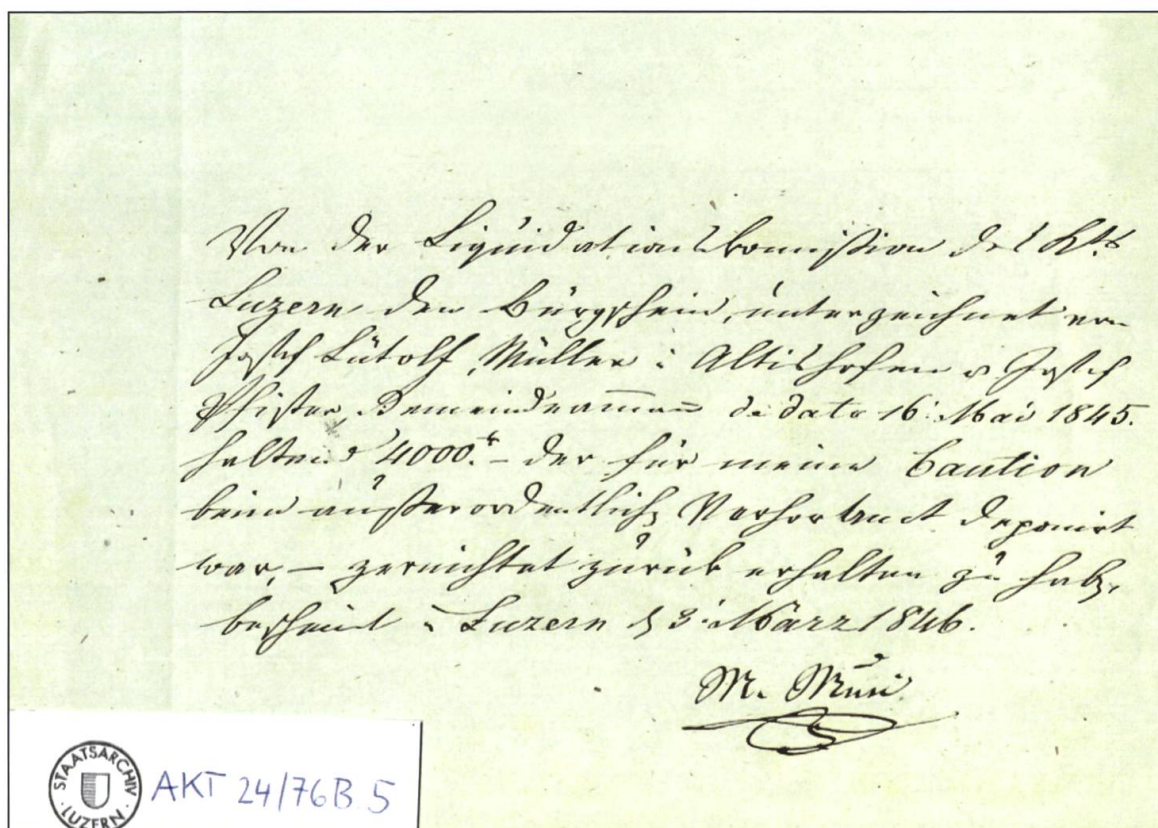 Von der Liquidationskommission des Kts
Luzern den Bürgschein, unterzeichnet von
Josef Lütolf, Müller i Altishofen u Josef
Pfister, Gemeindeammann de dato 16. Mai 1845.
haltend 4000.fr – der für meine Caution
beim außerordentlich Verhöramt deponirt
war, – zernichtet zurück erhalten zu hab,
bescheint Luzern d 3. März 1846.
M.
STAATSARCHIV
LUZERN
AKT 24/76B.5